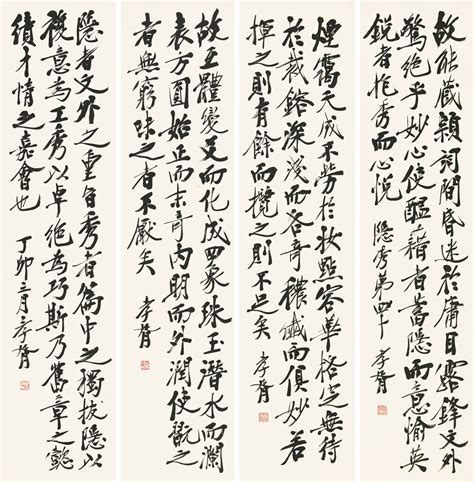 故能藏穎詞間昏迷於庸目露鋒文外
驚絕乎妙心使醞藉者蓄隱而意愉英
銳者抱秀而心悅 隱秀第四十 孝胥
煙靄天成不勞於妝點容華格定無待
於裁鎔深淺而各奇穠纖而俱妙若
揮之則有餘而攬之則不足矣 孝胥
故互體變爻而化成四象珠玉潛水而瀾
表方圓始正而末奇內明而外潤使翫之
者無窮味之者不厭矣 孝胥
隱者文外之重旨秀者篇中之獨拔隱以
複意為工秀以卓絕為巧斯乃舊章之懿
績才情之嘉會也 丁卯三月孝胥